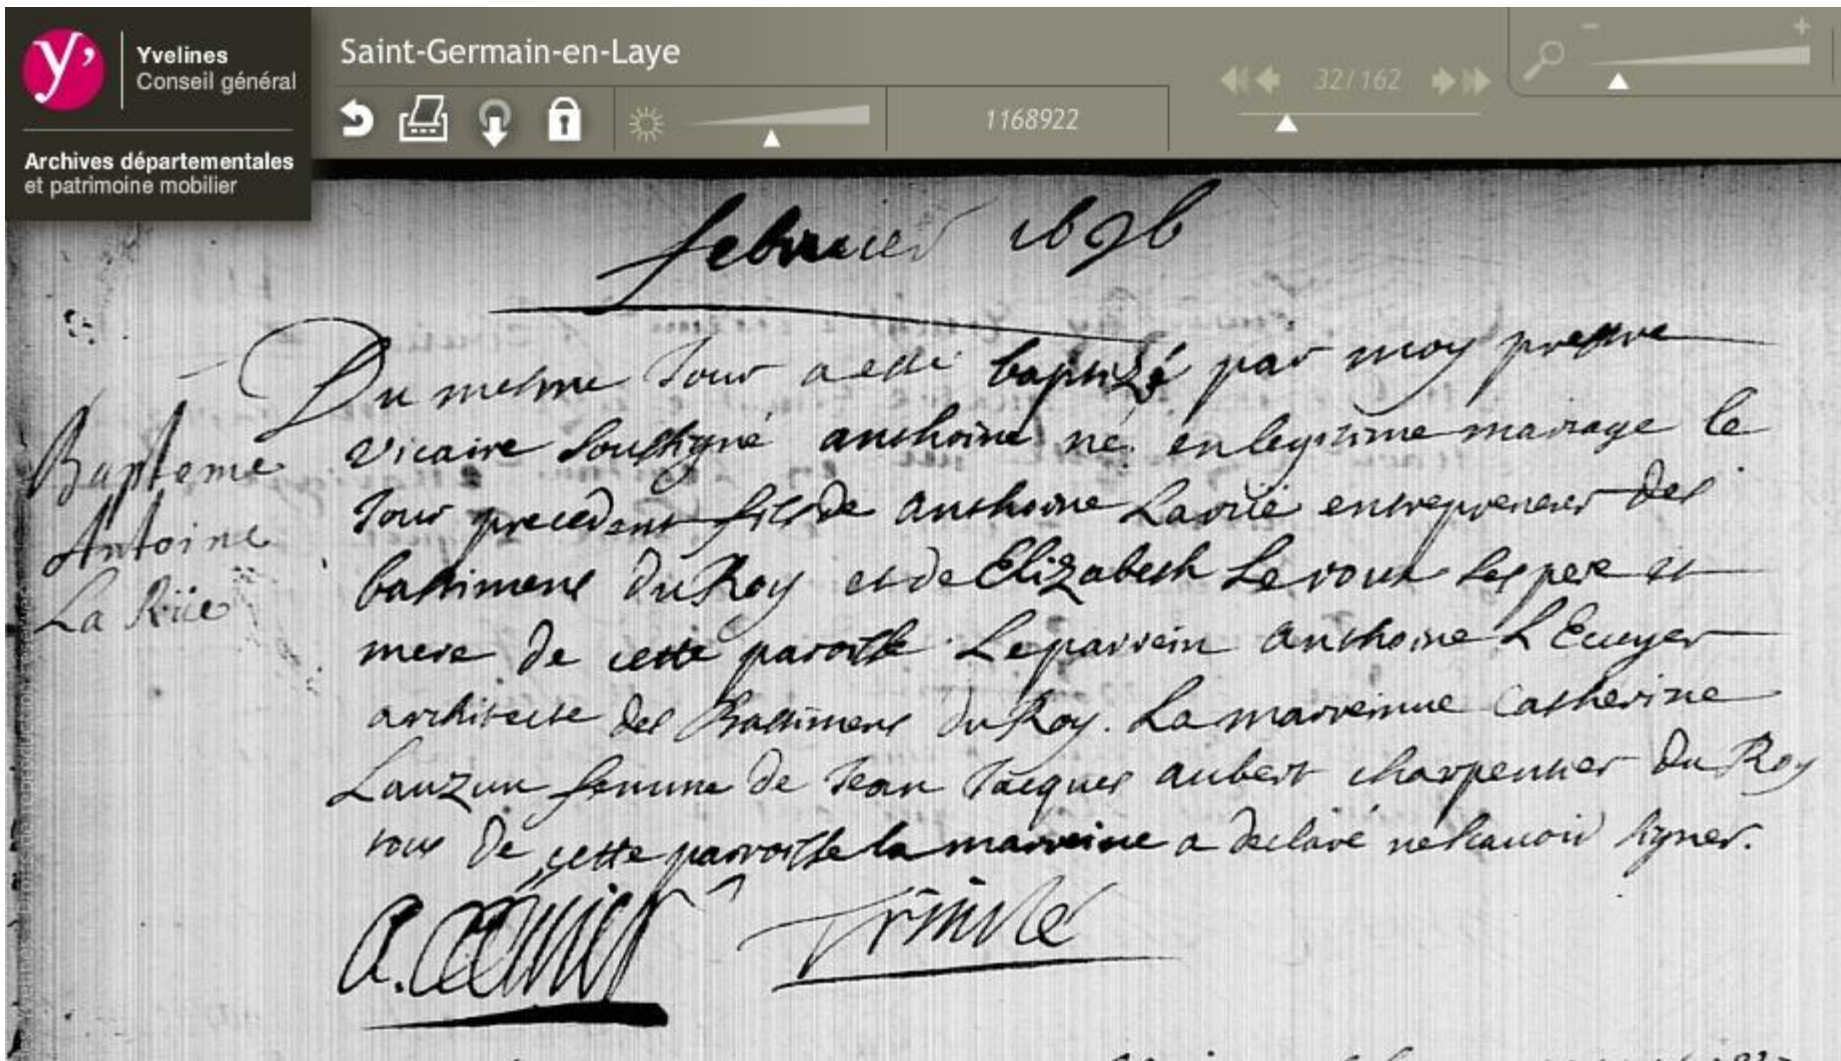 Yvelines
Conseil général
Archives départementales
et patrimoine mobilier
Saint-Germain-en-Laye
1168922
32/162
febvrier 1696
Bapteme
Antoine
La Rüe
Du mesme Jour a esté baptizé par moy prestre
vicaire soussigné anthoine né en legitime mariage le
Jour precedent fils de anthoine Larüe entrepreneur des
bastimens du Roy et de Elizabeth Leroux ses pere et
mere de cette paroisse Le parrein anthoine L'Ecuyer
architecte des Bastimens du Roy. La marreinne Catherine
Lauzun femme de Jean Jacques aubert charpentier Du Roy
tous De cette parroisse la marreine a declaré ne scauoir signer.